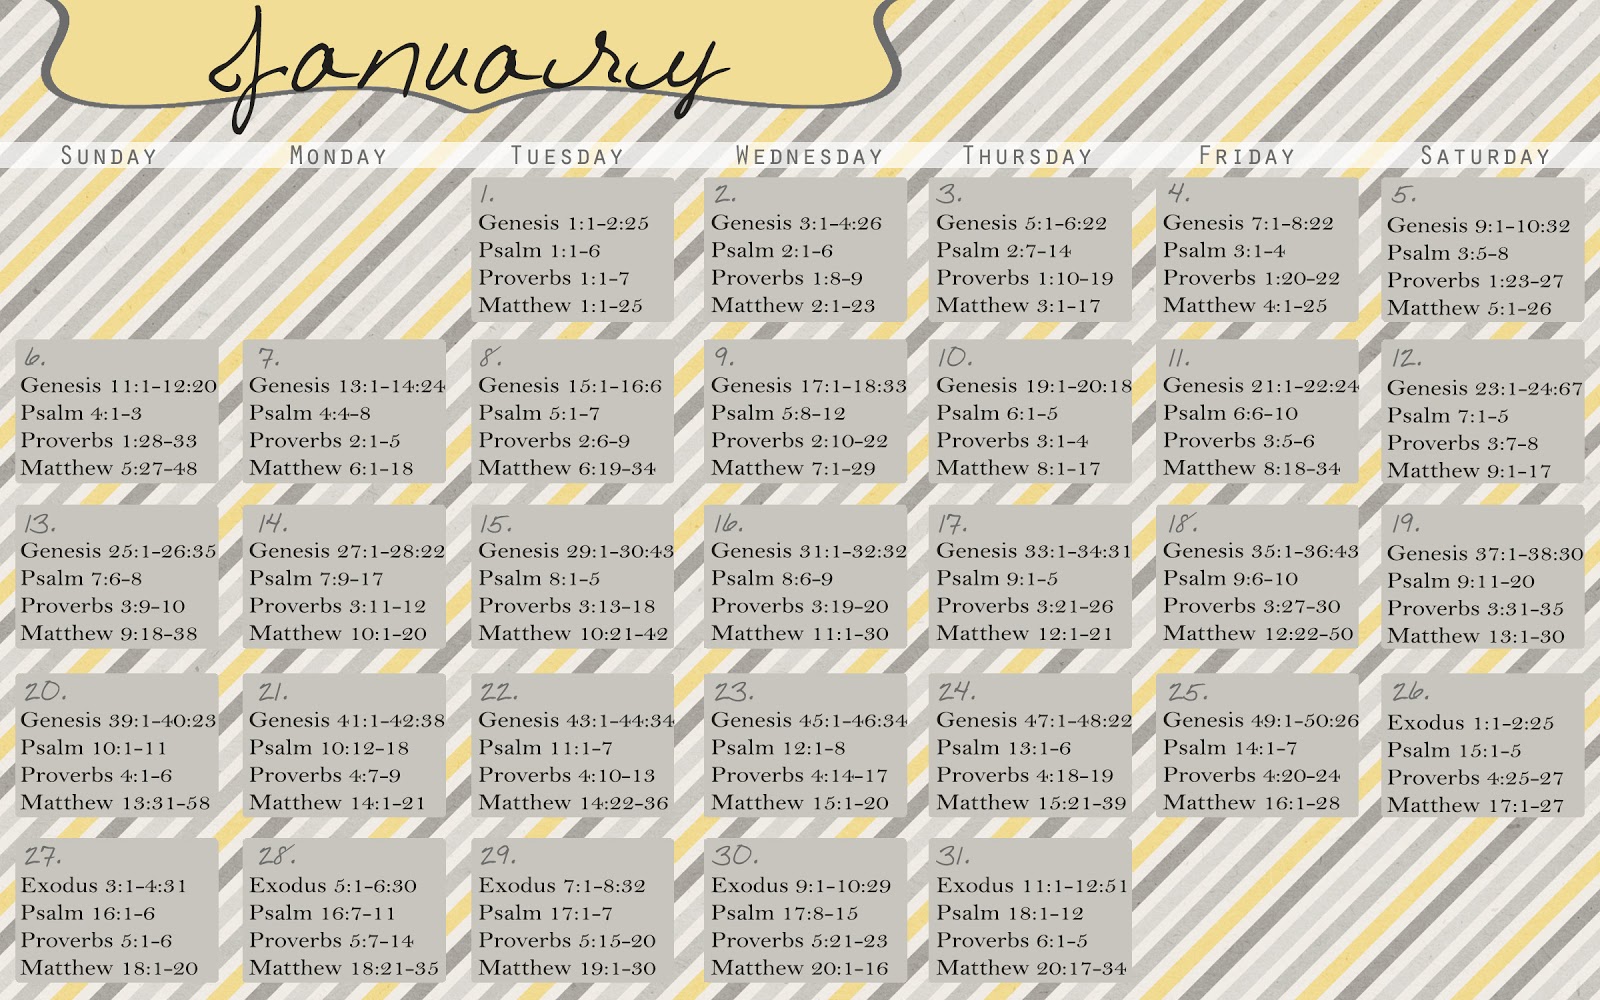 January
Sunday Monday Tuesday Wednesday Thursday Friday Saturday
1.
Genesis 1:1-2:25
Psalm 1:1-6
Proverbs 1:1-7
Matthew 1:1-25
2.
Genesis 3:1-4:26
Psalm 2:1-6
Proverbs 1:8-9
Matthew 2:1-23
3.
Genesis 5:1-6:22
Psalm 2:7-14
Proverbs 1:10-19
Matthew 3:1-17
4.
Genesis 7:1-8:22
Psalm 3:1-4
Proverbs 1:20-22
Matthew 4:1-25
5.
Genesis 9:1-10:32
Psalm 3:5-8
Proverbs 1:23-27
Matthew 5:1-26
6.
Genesis 11:1-12:20
Psalm 4:1-3
Proverbs 1:28-33
Matthew 5:27-48
7.
Genesis 13:1-14:24
Psalm 4:4-8
Proverbs 2:1-5
Matthew 6:1-18
8.
Genesis 15:1-16:6
Psalm 5:1-7
Proverbs 2:6-9
Matthew 6:19-34
9.
Genesis 17:1-18:33
Psalm 5:8-12
Proverbs 2:10-22
Matthew 7:1-29
10.
Genesis 19:1-20:18
Psalm 6:1-5
Proverbs 3:1-4
Matthew 8:1-17
11.
Genesis 21:1-22:24
Psalm 6:6-10
Proverbs 3:5-6
Matthew 8:18-34
12.
Genesis 23:1-24:67
Psalm 7:1-5
Proverbs 3:7-8
Matthew 9:1-17
13.
Genesis 25:1-26:35
Psalm 7:6-8
Proverbs 3:9-10
Matthew 9:18-38
14.
Genesis 27:1-28:22
Psalm 7:9-17
Proverbs 3:11-12
Matthew 10:1-20
15.
Genesis 29:1-30:43
Psalm 8:1-5
Proverbs 3:13-18
Matthew 10:21-42
16.
Genesis 31:1-32:32
Psalm 8:6-9
Proverbs 3:19-20
Matthew 11:1-30
17.
Genesis 33:1-34:31
Psalm 9:1-5
Proverbs 3:21-26
Matthew 12:1-21
18.
Genesis 35:1-36:43
Psalm 9:6-10
Proverbs 3:27-30
Matthew 12:22-50
19.
Genesis 37:1-38:30
Psalm 9:11-20
Proverbs 3:31-35
Matthew 13:1-30
20.
Genesis 39:1-40:23
Psalm 10:1-11
Proverbs 4:1-6
Matthew 13:31-58
21.
Genesis 41:1-42:38
Psalm 10:12-18
Proverbs 4:7-9
Matthew 14:1-21
22.
Genesis 43:1-44:34
Psalm 11:1-7
Proverbs 4:10-13
Matthew 14:22-36
23.
Genesis 45:1-46:34
Psalm 12:1-8
Proverbs 4:14-17
Matthew 15:1-20
24.
Genesis 47:1-48:22
Psalm 13:1-6
Proverbs 4:18-19
Matthew 15:21-39
25.
Genesis 49:1-50:26
Psalm 14:1-7
Proverbs 4:20-24
Matthew 16:1-28
26.
Exodus 1:1-2:25
Psalm 15:1-5
Proverbs 4:25-27
Matthew 17:1-27
27.
Exodus 3:1-4:31
Psalm 16:1-6
Proverbs 5:1-6
Matthew 18:1-20
28.
Exodus 5:1-6:30
Psalm 16:7-11
Proverbs 5:7-14
Matthew 18:21-35
29.
Exodus 7:1-8:32
Psalm 17:1-7
Proverbs 5:15-20
Matthew 19:1-30
30.
Exodus 9:1-10:29
Psalm 17:8-15
Proverbs 5:21-23
Matthew 20:1-16
31.
Exodus 11:1-12:51
Psalm 18:1-12
Proverbs 6:1-5
Matthew 20:17-34